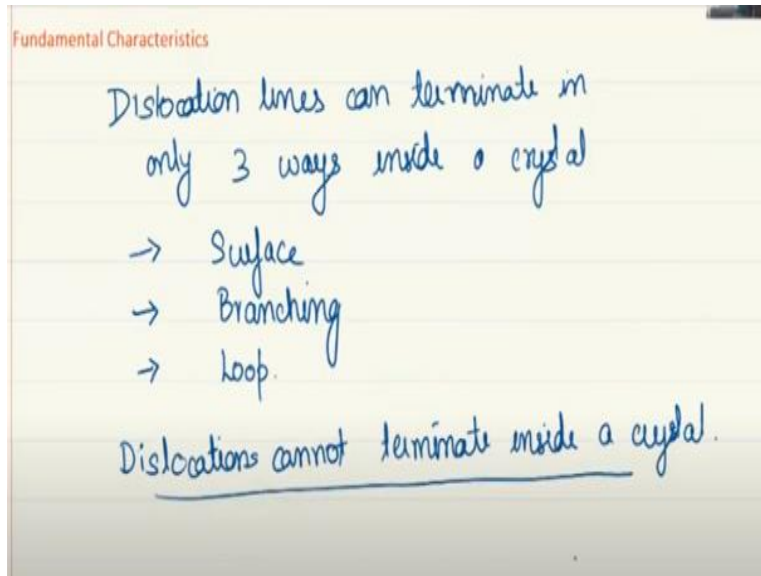 Fundamental Characteristics
Dislocation lines can terminate in
only 3 ways inside a crystal
→ Surface
→ Branching
→ Loop.
Dislocations cannot terminate inside a crystal.